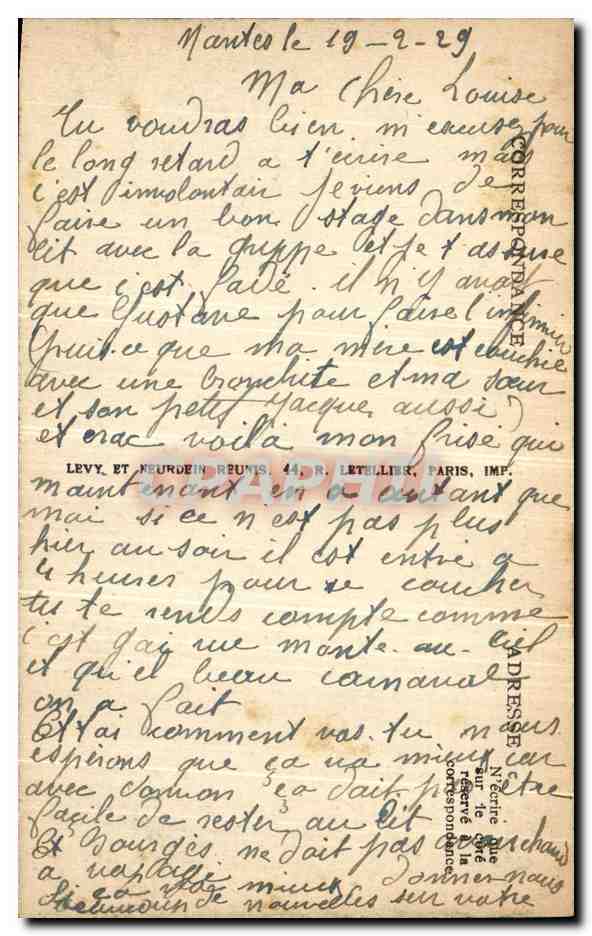 Nantes le 19-2-29
Ma Chère Louise
Tu voudras bien m'excuser pour
le long retard a t'écrire mais
c'est involontair je viens de
faire un bon stage dans mon
lit avec la grippe et je t assure
que c'est fadé. il n'y avait
que Gustave pour faire l'infirmier
(puis-ce que ma mère est couchée
avec une bronchite et ma sœur
et son petit Jacques aussi)
et crac voilà mon frisé qui
LEVY ET NEURDEIN REUNIS, 44, R. LETELLIER, PARIS, IMP.
maintenant en a autant que
moi si ce n'est pas plus
hier au soir il est entré a
4 heures pour se coucher
tu te rends compte comme
c'est gai rue monte-au-ciel
et quel beau carnaval
on a fait
Et toi comment vas-tu nous
espérons que ça va mieux car
avec ça doit pas être
facile de rester au lit
Et Bourges ne doit pas
a
Si ça va mieux donner-nous
beaucoup de nouvelles sur votre
CORRESPONDANCE
ADRESSE
N'écrire que
sur le côté
réservé à la
correspondance.
CPAPHIL